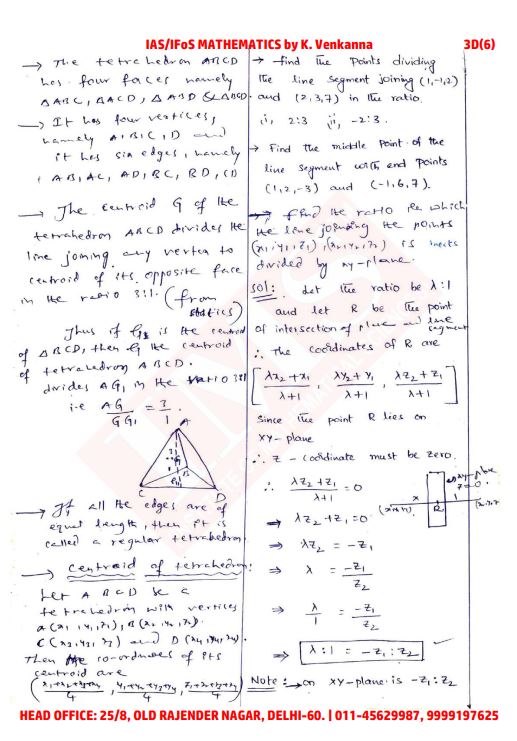 IAS/IFoS MATHEMATICS by K. Venkanna 3D(6)
→ The tetrahedron ABCD
has four faces namely
ΔABC, ΔACD, ΔABD & ΔBCD.
→ It has four vertices,
namely A, B, C, D and
it has six edges, namely
AB, AC, AD, BC, BD, CD
→ The centroid G of the
tetrahedron ABCD divides the
line joining any vertex to
centroid of its opposite face
in the ratio 3:1. (from
statics)
Thus if G₁ is the centroid
of ΔBCD, then G the centroid
of tetrahedron ABCD.
divides AG₁ in the ratio 3:1
i.e AG/GG₁ = 3/1.
A
3
G
1
B
G₁
C D
→ If all the edges are of
equal length, then it is
called a regular tetrahedron.
→ centroid of tetrahedron:
Let ABCD be a
tetrahedron with vertices
A(x₁, y₁, z₁), B(x₂, y₂, z₂).
C(x₃, y₃, z₃) and D(x₄, y₄, z₄).
Then the co-ordinates of its
centroid are
((x₁+x₂+x₃+x₄)/4, (y₁+y₂+y₃+y₄)/4, (z₁+z₂+z₃+z₄)/4)
→ find the points dividing
the line segment joining (1,-1,2)
and (2,3,7) in the ratio.
i, 2:3 ii, -2:3.
→ Find the middle point of the
line segment with end points
(1,2,-3) and (-1,6,7).
→ find the ratio in which
the line joining the points
(x₁, y₁, z₁), (x₂, y₂, z₂) is
divided by xy-plane.
sol: Let the ratio be λ:1
and let R be the point
of intersection of plane and line segment
∴ The coordinates of R are
[(λx₂+x₁)/(λ+1), (λy₂+y₁)/(λ+1), (λz₂+z₁)/(λ+1)]
since the point R lies on
XY-plane
∴ z-coordinate must be zero.
∴ (λz₂+z₁)/(λ+1) = 0
⇒ λz₂+z₁ = 0
⇒ λz₂ = -z₁
⇒ λ = -z₁/z₂
⇒ λ/1 = -z₁/z₂
⇒ λ:1 = -z₁:z₂
xy-plane
z=0
R
Note: → on xy-plane is -z₁:z₂
HEAD OFFICE: 25/8, OLD RAJENDER NAGAR, DELHI-60. | 011-45629987, 9999197625